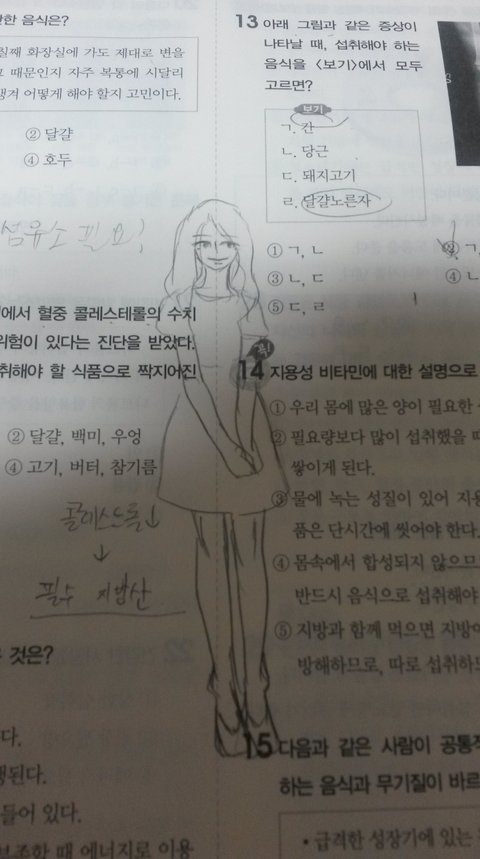 한 음식은?
질째 화장실에 가도 제대로 변을
때문인지 자주 복통에 시달리
겨 어떻게 해야 할지 고민이다.
② 달걀
④ 호두
섬유소 필요!
에서 혈중 콜레스테롤의 수치
위험이 있다는 진단을 받았다.
취해야 할 식품으로 짝지어진
② 달걀, 백미, 우엉
④ 고기, 버터, 참기름
콜레스테롤↓
↓
필수 지방산
것은?
다.
행된다.
들어 있다.
부족할 때 에너지로 이용
13 아래 그림과 같은 증상이
나타날 때, 섭취해야 하는
음식을 <보기>에서 모두
고르면?
보기
ㄱ. 간
ㄴ. 당근
ㄷ. 돼지고기
ㄹ. 달걀노른자
① ㄱ, ㄴ
② ㄱ,
③ ㄴ, ㄷ
④ ㄴ
⑤ ㄷ, ㄹ
14 지용성 비타민에 대한 설명으로
① 우리 몸에 많은 양이 필요한
② 필요량보다 많이 섭취했을 때
쌓이게 된다.
③ 물에 녹는 성질이 있어 지용
품은 단시간에 씻어야 한다.
④ 몸속에서 합성되지 않으므
반드시 음식으로 섭취해야
⑤ 지방과 함께 먹으면 지방이
방해하므로, 따로 섭취하
15 다음과 같은 사람이 공통적
하는 음식과 무기질이 바르
• 급격한 성장기에 있는